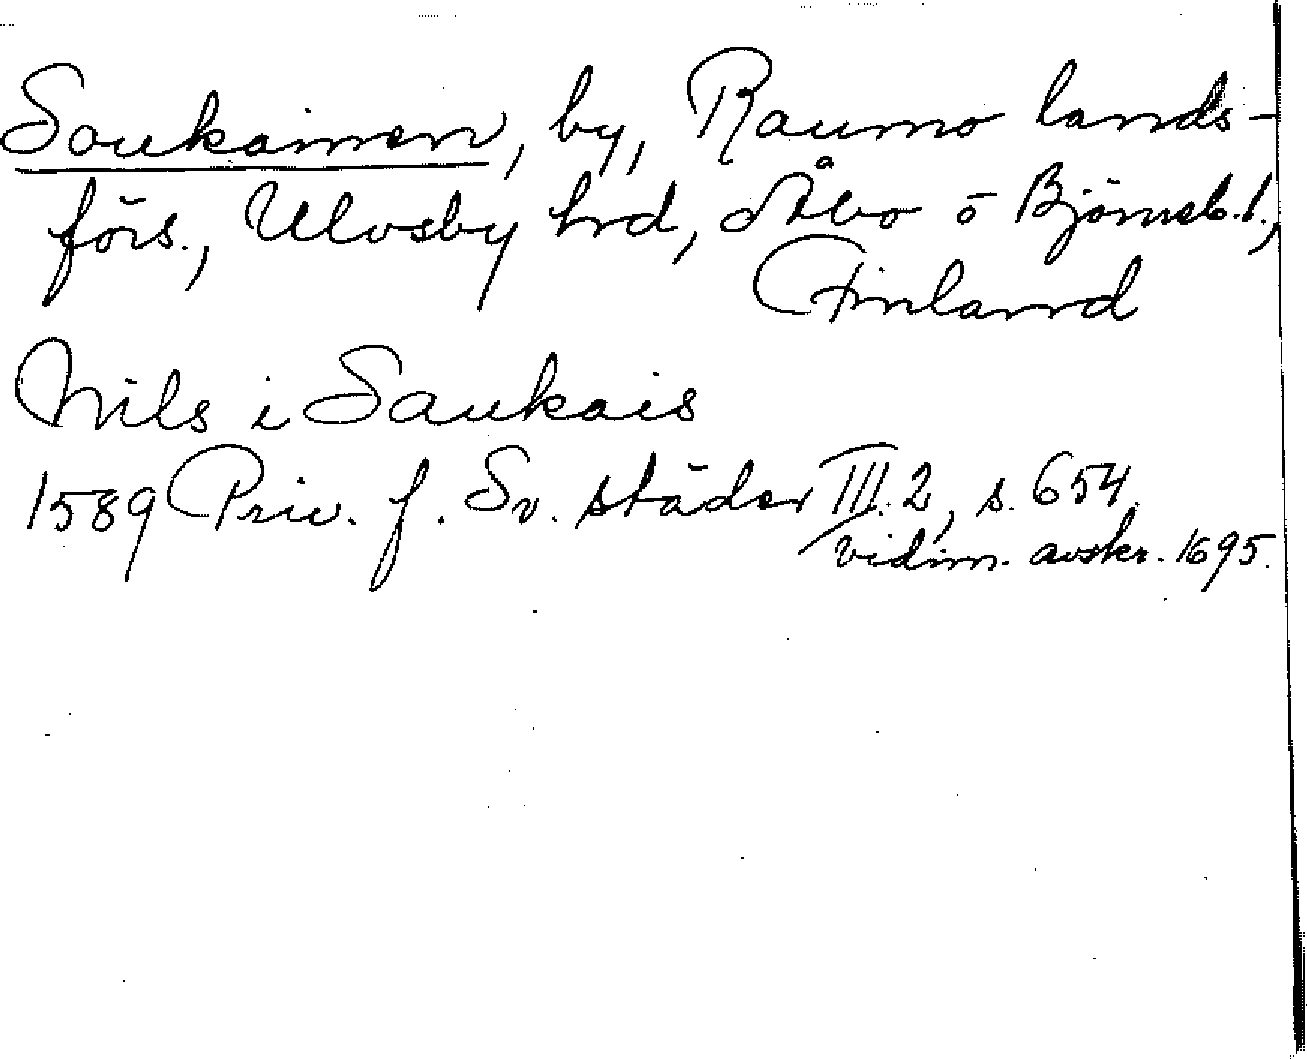 Soukainen, by, Raumo lands-
förs., Ulvsby hrd, Åbo o Björneb.l.,
Finland
Nils i Saukais
1589 Priv. f. Sv. städer III.2, s. 654,
vidim. avskr. 1695.